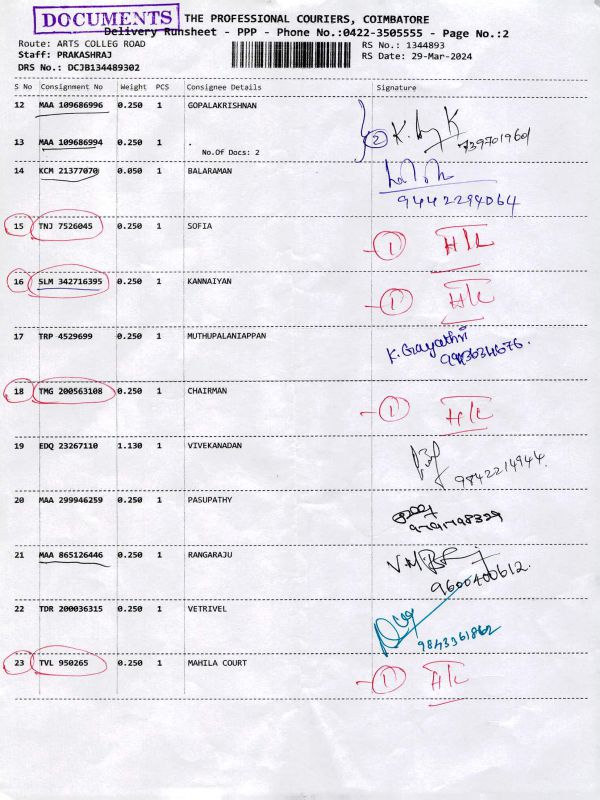 DOCUMENTS THE PROFESSIONAL COURIERS, COIMBATORE
Delivery Runsheet - PPP - Phone No.:0422-3505555 - Page No.:2
Route: ARTS COLLEG ROAD RS No.: 1344893
Staff: PRAKASHRAJ RS Date: 29-Mar-2024
DRS No.: DCJB134489302
S No Consignment No Weight PCS Consignee Details Signature
12 MAA 109686996 0.250 1 GOPALAKRISHNAN
13 MAA 109686994 0.250 1 . 2
No.Of Docs: 2
14 KCM 21377070 0.050 1 BALARAMAN
9442294064
15 TNJ 7526045 0.250 1 SOFIA 1 H/L
16 SLM 342716395 0.250 1 KANNAIYAN 1 H/L
17 TRP 4529699 0.250 1 MUTHUPALANIAPPAN K. Gayathri
18 TMG 200563108 0.250 1 CHAIRMAN 1 H/L
19 EDQ 23267110 1.130 1 VIVEKANADAN
9842214944
20 MAA 299946259 0.250 1 PASUPATHY
21 MAA 865126446 0.250 1 RANGARAJU
9600400612.
22 TDR 200036315 0.250 1 VETRIVEL
9843361862
23 TVL 950265 0.250 1 MAHILA COURT 1 H/L